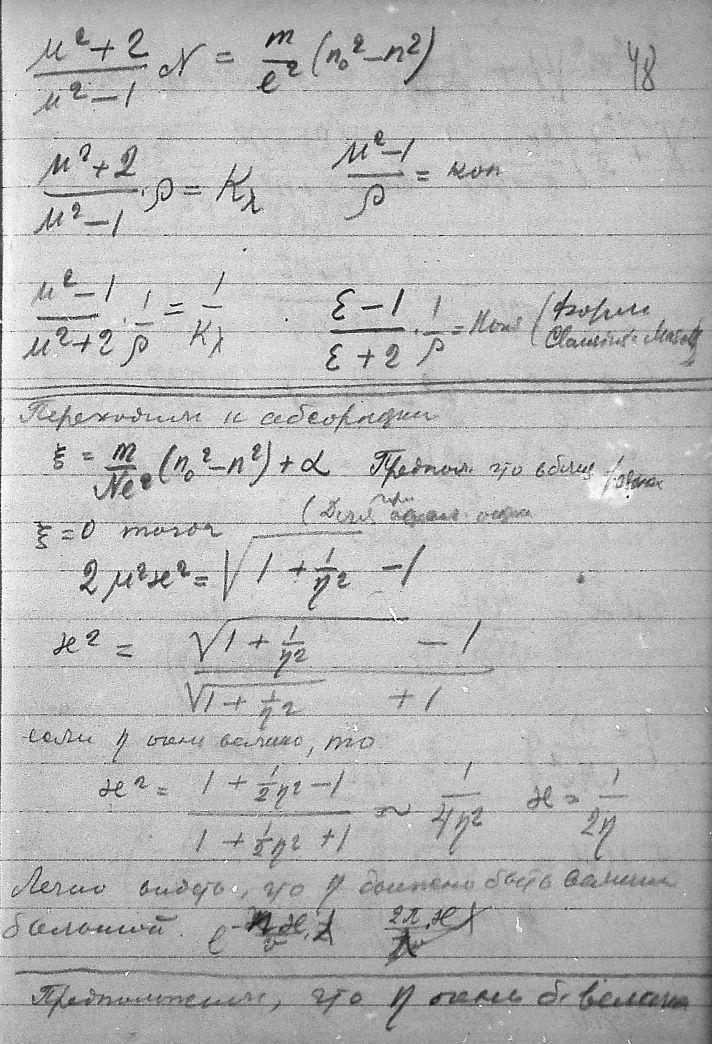 48
(μ² + 2)/(μ² − 1) N = m/e² (n₀² − n²)
(μ² + 2)/(μ² − 1) · ρ = K_λ    (μ² − 1)/ρ = кон
(μ² − 1)/(μ² + 2) · 1/ρ = 1/K_λ    (ε − 1)/(ε + 2) · 1/ρ = (Форм
Переходим к абсорпции
ξ = m/(Ne²) (n₀² − n²) + α   Предпол. что вблиз
ξ = 0 тогда
2μ²ϰ² = √(1 + 1/η²) − 1
ϰ² = (√(1 + 1/η²) − 1)/(√(1 + 1/η²) + 1)
если η очень велико, то
ϰ² = (1 + ½η² − 1)/(1 + ½η² + 1) ~ 1/(4η²)   ϰ = 1/(2η)
Легко видеть, что η должно быть
большой.
Предположим, что η очень б. велико